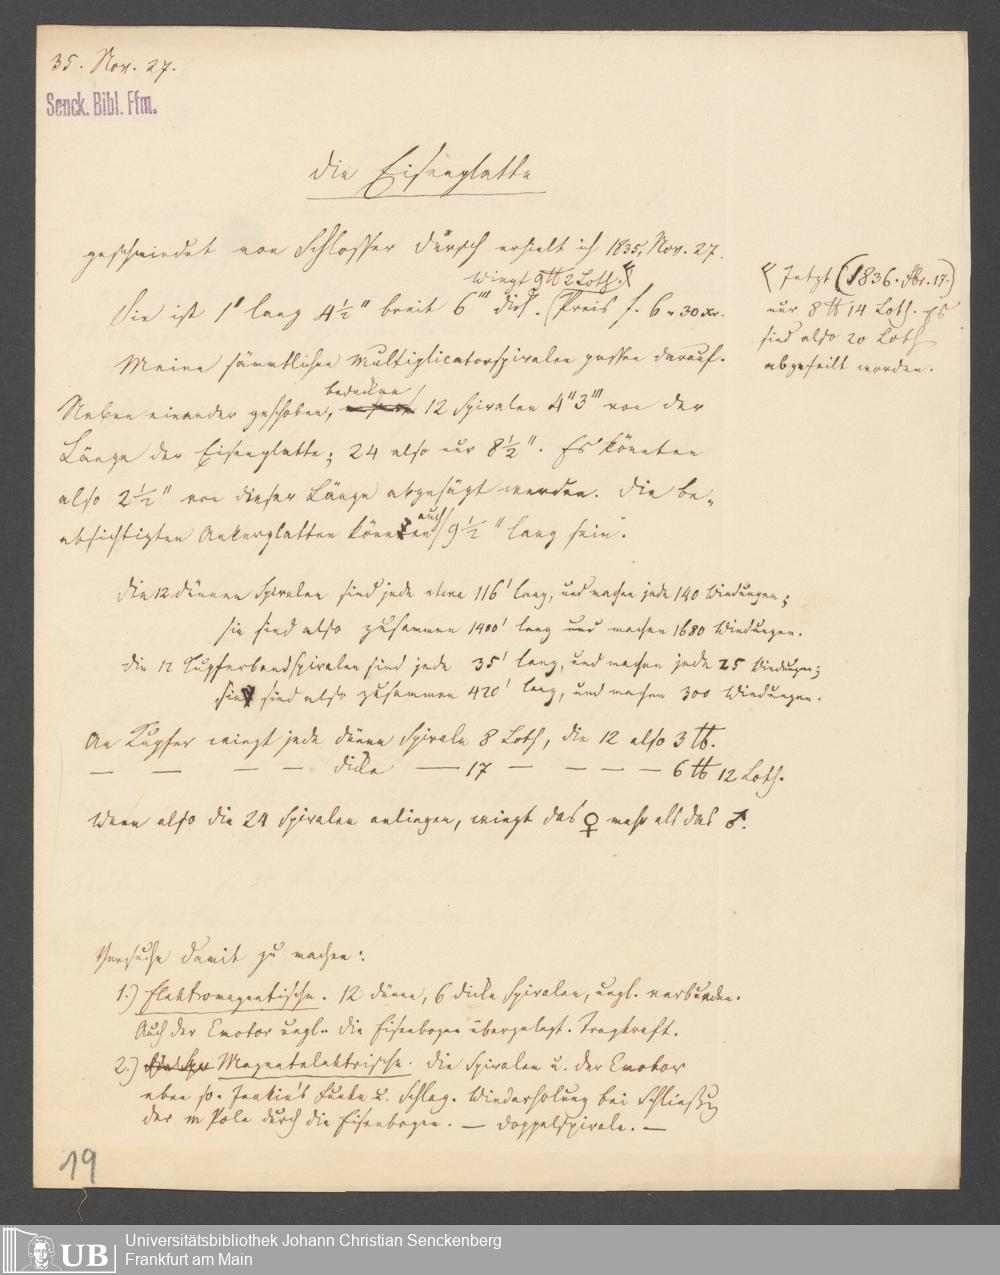 35. Nov. 27.
Senck. Bibl. Ffm.
Die Eisenplatte
geschmiedet von Schlosser Dursch erhielt ich 1835, Nov. 27.
wiegt 9 ℔ 2 Loth.
Sie ist 1' lang 4½" breit 6''' dick. (Preis f. 6 „ 30 xr.
Meine sämmtlichen Multiplicatorspiralen passen darauf.
Neben einander geschoben, bedecken 12 Spiralen 4" 3''' von der
Länge der Eisenplatte; 24 also nur 8½". Es könnten
also 2½" von dieser Länge abgesägt werden. Die be-
absichtigten Ankerplatten können auch 9½" lang sein.
Jetzt (1836. Fbr. 17.)
nur 8 ℔ 14 Loth. Es
sind also 20 Loth
abgefeilt worden.
Die 12 dünnen Spiralen sind jede etwa 116' lang, und machen jede 140 Windungen;
sie sind also zusammen 1400' lang und machen 1680 Windungen.
Die 12 Kupferbandspiralen sind jede 35' lang, und machen jede 25 Windungen;
sie sind also zusammen 420' lang, und machen 300 Windungen.
An Kupfer wiegt jede dünne Spirale 8 Loth, die 12 also 3 ℔.
— — — — dicke — 17 — — — — 6 ℔ 12 Loth.
Wenn also die 24 Spiralen anliegen, wiegt das ♀ mehr als das ♂.
Versuche damit zu machen:
1.) Elektromagnetische. 12 dünne, 6 dicke Spiralen, ungl. verbunden.
Auch der Emotor ungl. die Eisenbogen übergelegt. Tragkraft.
2.) Magnetelektrische. Die Spiralen u. der Emotor
eben so. Jenkin's Funke u. Schlag. Wiederholung bei Schließung
der m Pole durch die Eisenbogen. — Doppelspirale. —
19
UB
Universitätsbibliothek Johann Christian Senckenberg
Frankfurt am Main